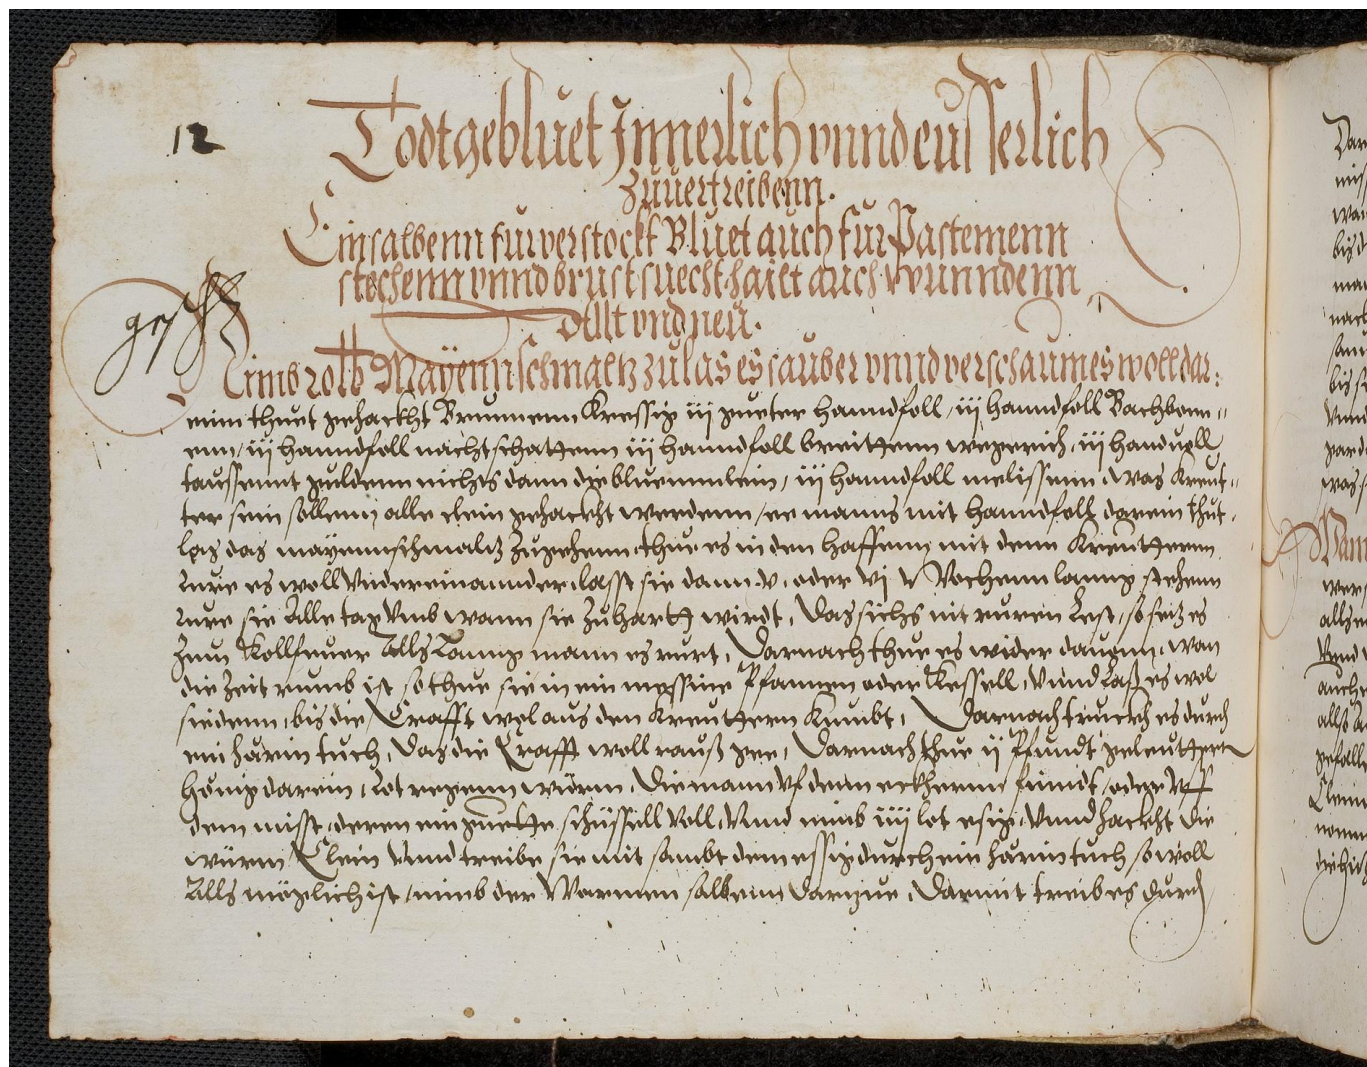 12
Todtgebluet Innerlich vnnd eusserlich
zuuertreibenn.
Ein salbenn fur verstockt Bluet auch fur Pastemenn
stechenn vnnd brust suecht hailt auch wunndenn
Allt vnd neu.
Nimb 20 lb Mayenn schmaltz zulas es sauber vnnd verschaum es woll dar:
einn thuet gehackht Brunnenn Kressig iij gueter hanndfoll / iij hanndfoll Bachbone
enn / iij hanndfoll nachtschattenn iij hanndfoll breittenn wegerich, iij handuoll
taussennt guldenn nichts dann die bluemmlein / iij hanndfoll melissenn was Kreut
ter sein sollenn alle clein gehackht werdenn / ee manns mit hanndfoll darein thut,
las das mayennschmaltz zugehenn thue es in den haffenn mit denn Kreutternn
rure es woll vndereinannder, lasst sie dann v. oder vj Wochenn lanng stehenn
rure sie Alle tag vmb wann sie zu hartt wirdt, das sichs nit ruren Lest, so setz es
zum Kollfeuer Alls Lanng mann es rurt, Darnach thue es wider dauonn, wan
die Zeit rumb ist so thue sie in ein messine Pfannen oder Kessell, vnnd Laß es wol
siedenn, bis die Crafft wol aus den Kreutternn Kumbt, Darnach truckh es durch
ein härin tuch, das die Crafft woll rauß gee, Darnach thue ij Pfundt geleutterten
hönig darein, Rot regenn würm, die mann vf denn eckhernn findt / oder vff
dem misst, deren ein guette schüssell voll, vnnd nimb iiij lot esig, vnnd hackht die
würm Clein vnnd treibe sie mit sambt dem essig durch ein härin tuch so woll
Alls möglich ist / nimb der Warmen salbenn darzue, Darmit treib es durch